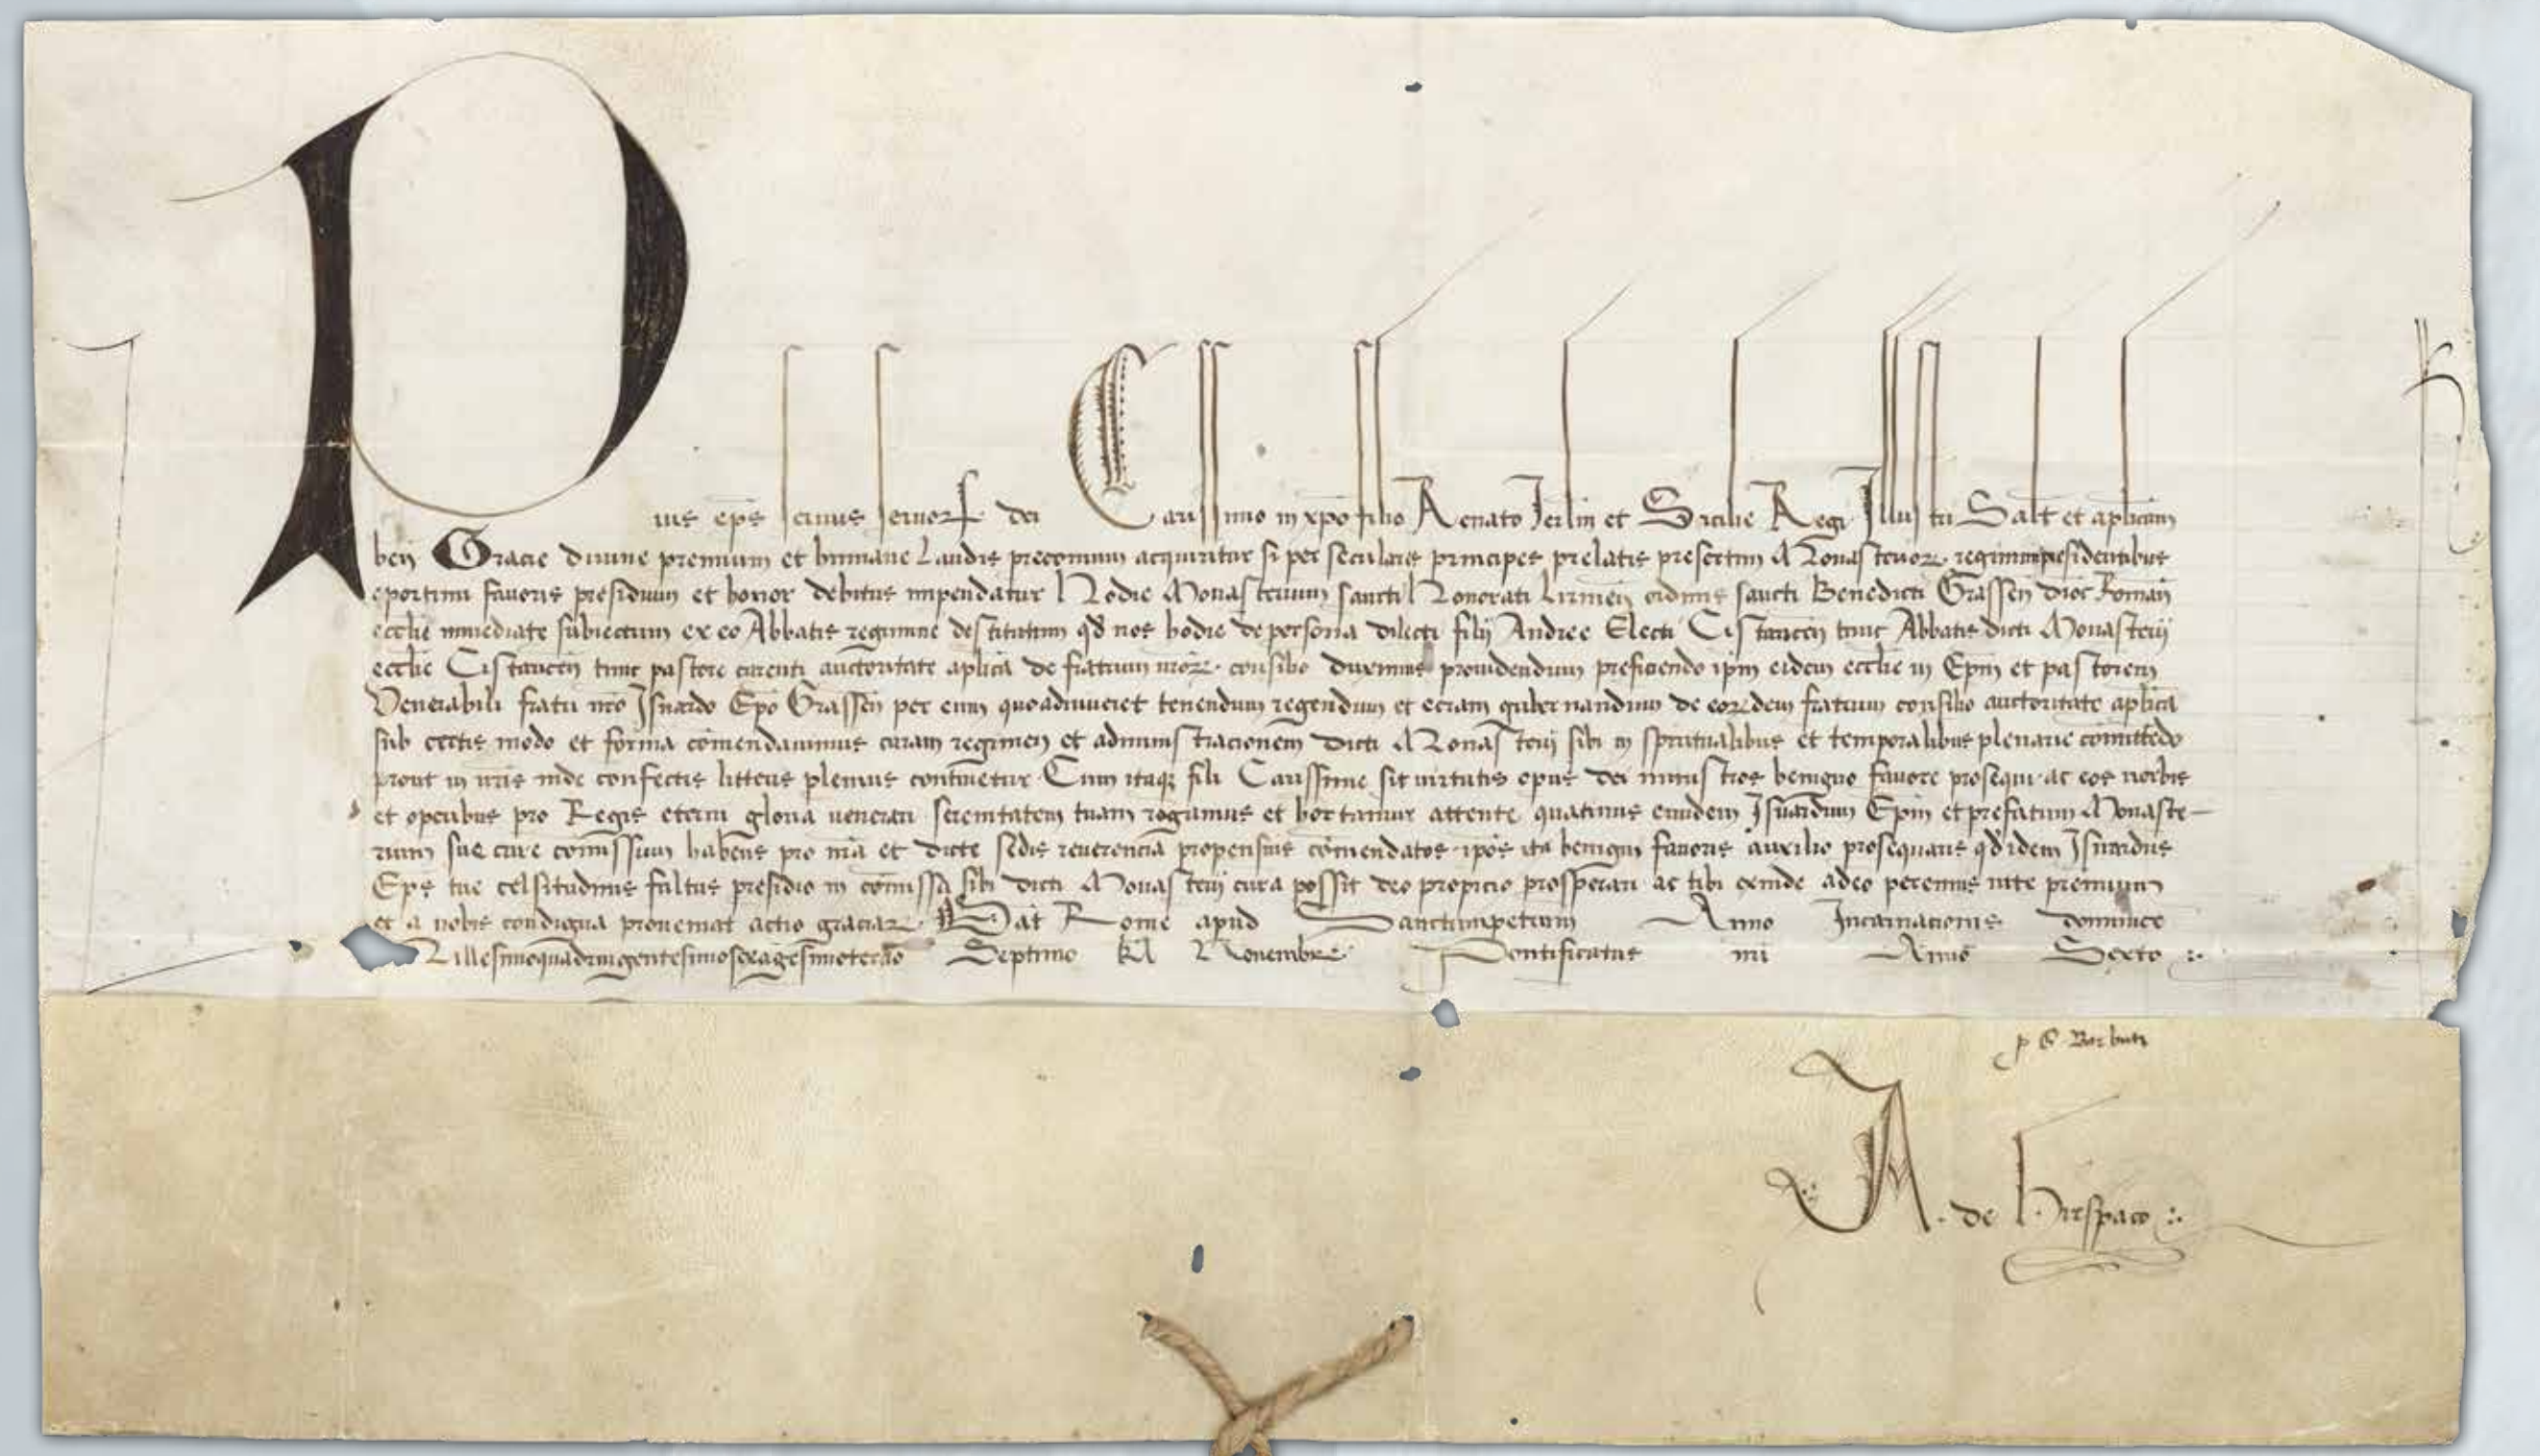 Pius ep̄s servus servoꝝ dei Carissimo in xp̄o filio Renato Jerlm̄ et Sicilie Regi Illustri Salt̄ et aplicam̄
ben̄ Gracie divine premium et humane laudis preconium acquiritur si per seculares principes prelatis presertim Monasterioꝝ regimini presidentibus
oportuni favoris presidium et honor debitus impendatur Hodie Monasterium sancti Honorati Lirinen̄ ordinis sancti Benedicti Grassen̄ dioc̄ Roman̄
eccl̄ie immediate subiectum ex eo Abbatis regimine destitutum qd̄ nos hodie de persona dilecti filij Andree Electi Cistaricen̄ tunc Abbatis dicti Monasterij
eccl̄ie Cistaricen̄ tunc pastore carenti auctoritate aplica de fratrum nr̄oꝝ consilio duximus providendum preficiendo ip̄m eidem eccl̄ie in Ep̄m et pastorem
Venerabili fratri nr̄o Isnardo Ep̄o Grassen̄ per eum quoadviveret tenendum regendum et eciam gubernandum de eoꝝdem fratrum consilio auctoritate aplica
sub certis modo et forma com̄endavimus curam regimen et administracionem dicti Monasterij sibi in sp̄ritualibus et temporalibus plenarie comittēdo
prout in nr̄is inde confectis litteris plenius continetur Cum itaqꝫ fili Carissime sit virtutis opus dei ministros benigno favore prosequi ac eos verbis
et operibus pro Regis eterni gloria venerari serenitatem tuam rogamus et hortamur attente quatinus eundem Isnardum Ep̄m et prefatum Monaste-
rium sue cure com̄issum habens pro nr̄a et dicte sedis reverencia propensius com̄endatos ip̄os ita benigni favoris auxilio prosequaris qd̄ idem Isnardus
Ep̄s tue celsitudinis fultus presidio in com̄issa sibi dicti Monasterij cura possit deo propicio prosperari ac tibi exinde a deo perennis vite premium
et a nobis condigna proveniat actio graciaꝝ Dat̄ Rome apud Sanctumpetrum Anno Incarnacionis dominice
Millesimoquadringentesimosexagesimotercio Septimo kl̄ Novembr̄ Pontificatus nr̄i Anno Sexto
A. de